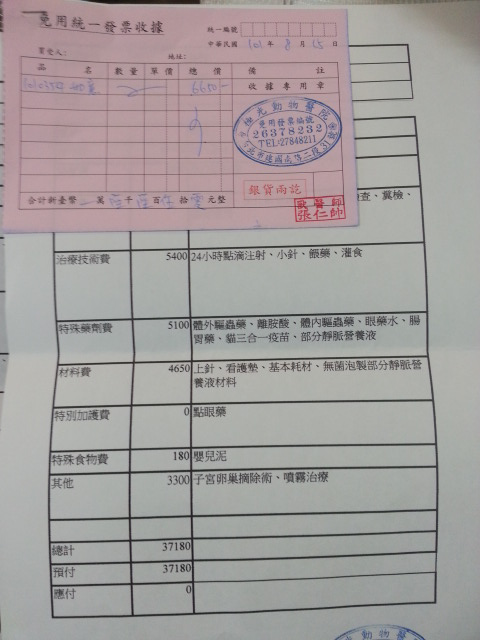 免用統一發票收據
統一編號
中華民國 101 年 8 月 15 日
買受人:
地址:
品名 數量 單價 總價 備註
6600- 收據專用章
動物醫院
免用發票編號
26378232
TEL:27848211
北市建國南路二段31號
銀貨兩訖
獸醫師
張仁帥
合計新臺幣 萬 千 百 拾 元整
查、糞檢、
治療技術費 5400 24小時點滴注射、小針、餵藥、灌食
特殊藥劑費 5100 體外驅蟲藥、離胺酸、體內驅蟲藥、眼藥水、腸
胃藥、貓三合一疫苗、部分靜脈營養液
材料費 4650 上針、看護墊、基本耗材、無菌泡製部分靜脈營
養液材料
特別加護費 0 點眼藥
特殊食物費 180 嬰兒泥
其他 3300 子宮卵巢摘除術、噴霧治療
總計 37180
預付 37180
應付 0
動物醫